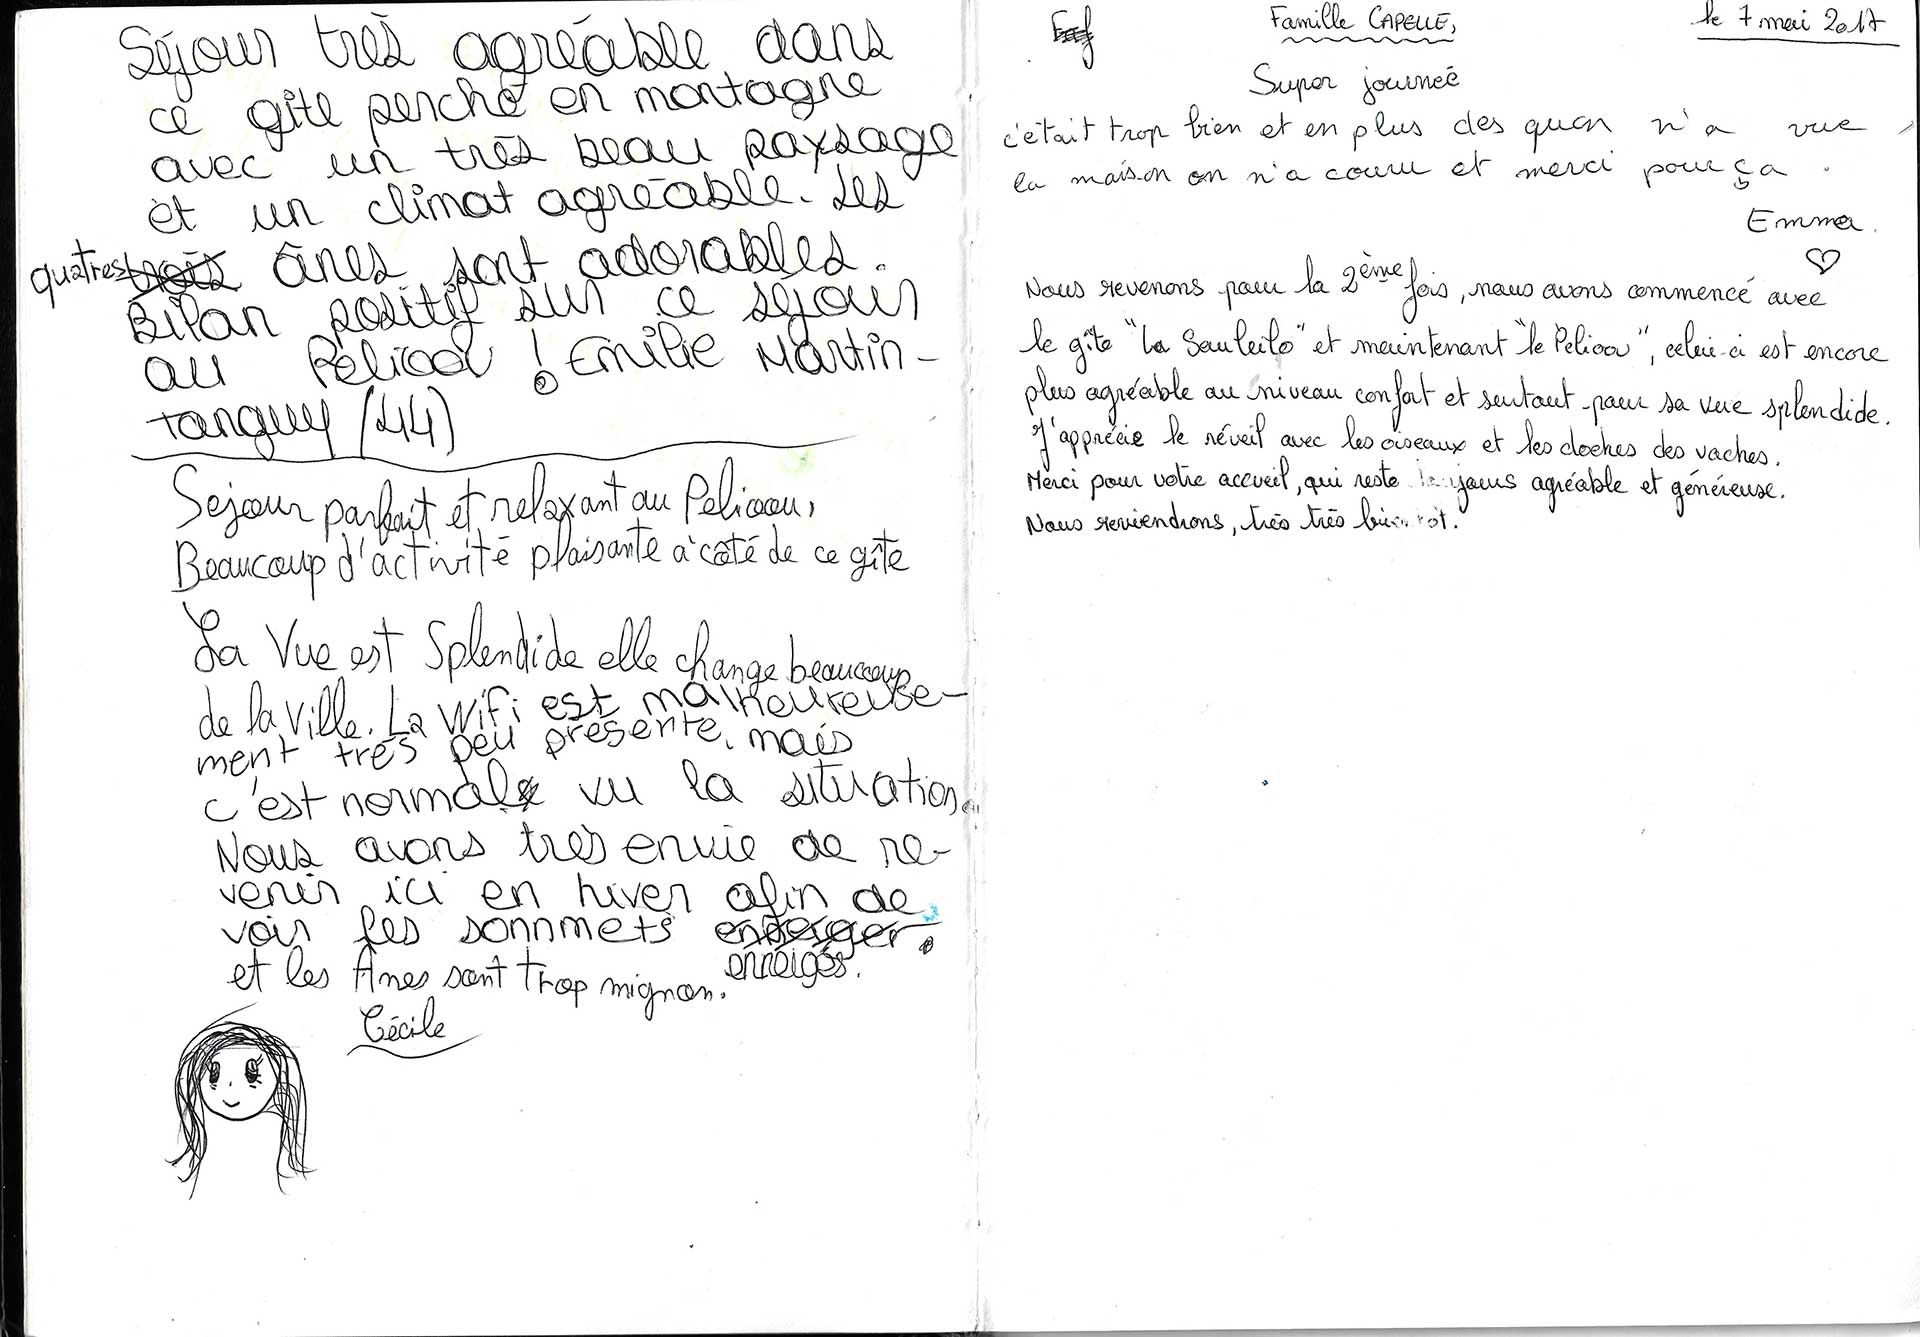 Séjour très agréable dans
ce gîte perché en montagne
avec un très beau paysage
et un climat agréable. Les
quatres trois ânes sont adorables.
Bilan positif sur ce séjour
au Pélicou ! Emilie Martin-
tanguy (44)
Sejour parfait et relaxant au Pelicou,
Beaucoup d'activité plaisante à côté de ce gîte
La Vue est Splendide elle change beaucoup
de la ville. La Wifi est malheureuse-
ment très peu présente, mais
c'est normal vu la situation.
Nous avons très envie de re-
venir ici en hiver afin de
voir les sonnmets
enneigés.
et les Ânes sont trop mignon.
Cécile
Famille CAPELLE,
le 7 mai 2017
Super journeé
c'était trop bien et en plus des quon n'a vue
la maison on n'a couru et merci pour ça.
Emma.
Nous revenons pour la 2ème fois, nous avons commencé avec
le gîte "La Souleilo" et maintenant "le Pelicou", celui-ci est encore
plus agréable au niveau confort et surtout pour sa vue splendide.
J'apprécie le réveil avec les oiseaux et les cloches des vaches.
Merci pour votre accueil, qui reste toujours agréable et généreuse.
Nous reviendrons, très très bientôt.